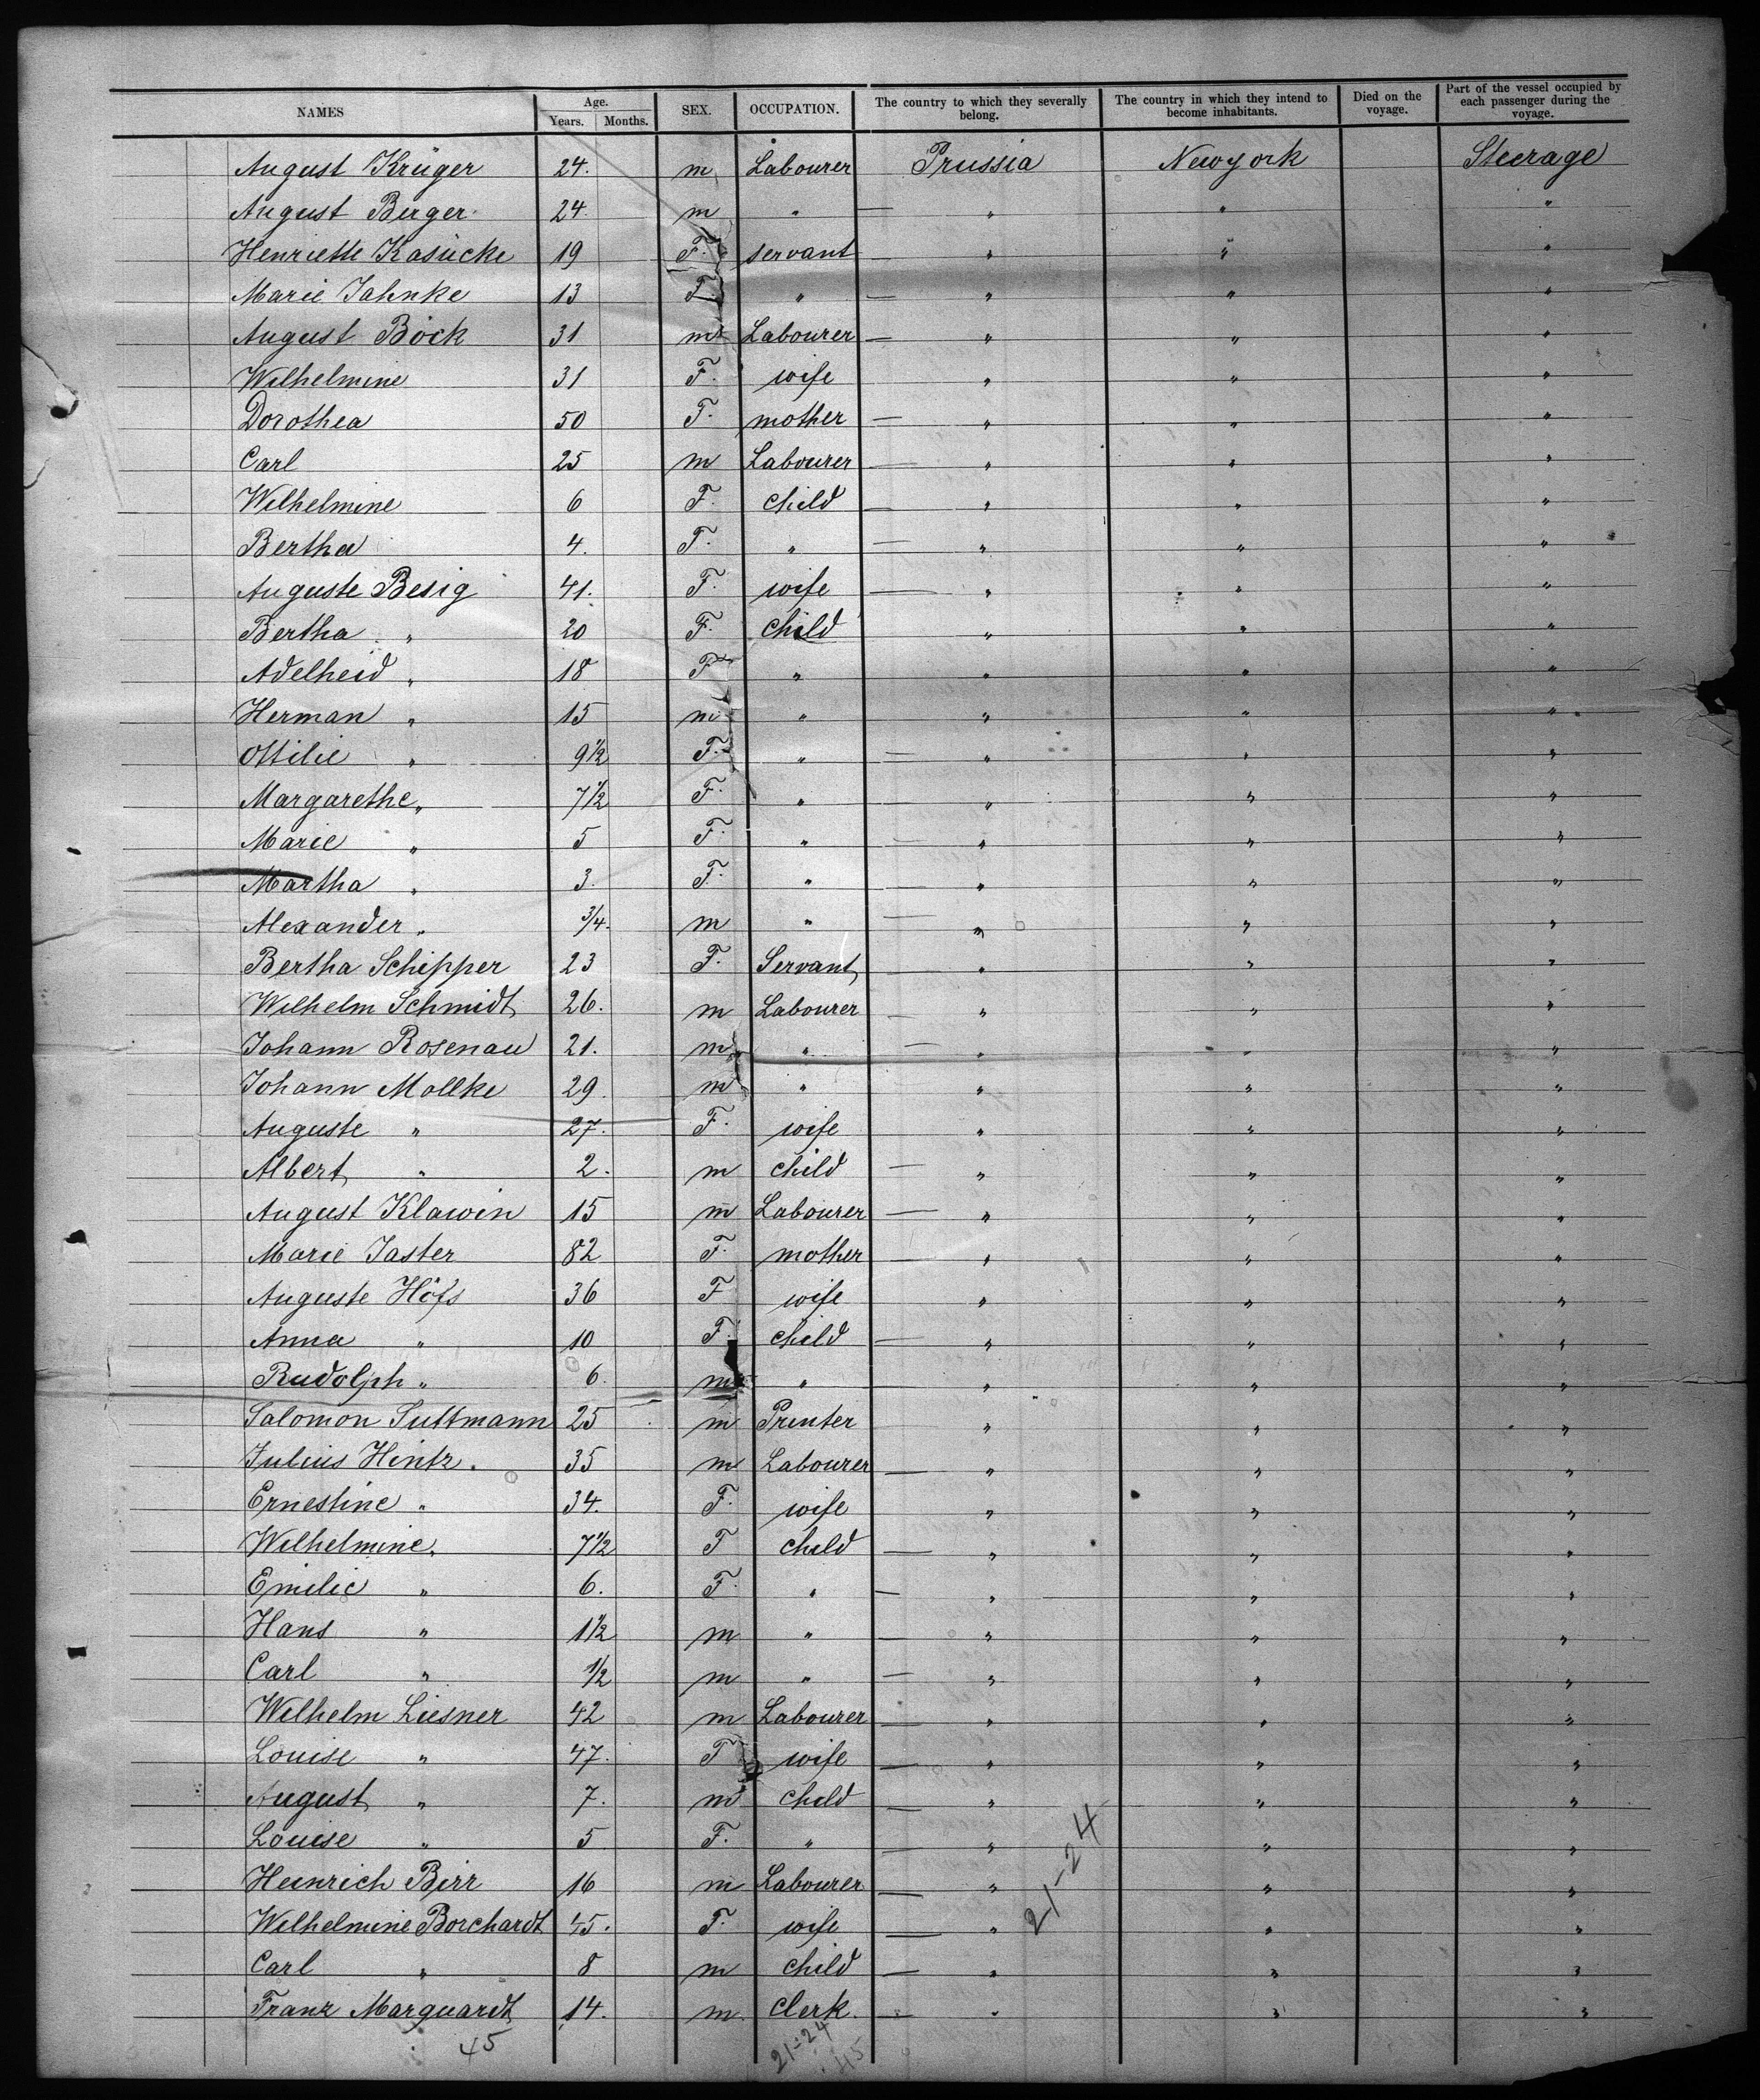 NAMES Age. Years. Months. SEX. OCCUPATION. The country to which they severally belong. The country in which they intend to become inhabitants. Died on the voyage. Part of the vessel occupied by each passenger during the voyage.
August Krüger 24. m Labourer Prussia Newyork Steerage
August Berger 24. m " — " " "
Henriette Kasücke 19 F. servant — " " "
Marie Jahnke 13 F. " — " " "
August Böck 31 m Labourer — " " "
Wilhelmine 31 F. wife " " "
Dorothea 50 F. mother — " " "
Carl 25 m Labourer — " " "
Wilhelmine 6 F. child — " " "
Bertha 4. F. " — " " "
Auguste Besig 41. F. wife — " " "
Bertha " 20 F. child " " "
Adelheid " 18 F " " " "
Herman " 15 m " " " "
Ottilie " 9 1/2 F. " — " " "
Margarethe " 7 1/2 F. " — " " "
Marie " 5 F. " — " " "
Martha " 3. F. " — " " "
Alexander " 3/4. m " — " " "
Bertha Schipper 23 F. Servant — " " "
Wilhelm Schmidt 26. m Labourer — " " "
Johann Rosenau 21. m " — " " "
Johann Mollke 29. m " " " "
Auguste " 27. F. wife " " "
Albert " 2. m child — " " "
August Klawin 15 m Labourer — " " "
Marie Jaster 82 F. mother — " " "
Auguste Höfs 36 F wife " " "
Anna " 10 F. child — " " "
Rudolph " 6. m " " " "
Salomon Suttmann 25 m Printer " " "
Julius Hintz. 35 m Labourer — " " "
Ernestine " 34. F. wife " " "
Wilhelmine " 7 1/2 F child — " " "
Emilie " 6. F. " — " " "
Hans " 1 1/2 m " — " " "
Carl " 1/2 m " — " " "
Wilhelm Liesner 42 m Labourer — " " "
Louise " 47. F wife — " " "
August " 7. m child — " " "
Louise " 5 F. " — " " "
Heinrich Birr 16 m Labourer — " " "
Wilhelmine Borchardt 45. F. wife — " " "
Carl " 8 m child — " " "
Franz Marquardt 14. m. Clerk. — " " "
21-24
45
21-24
45